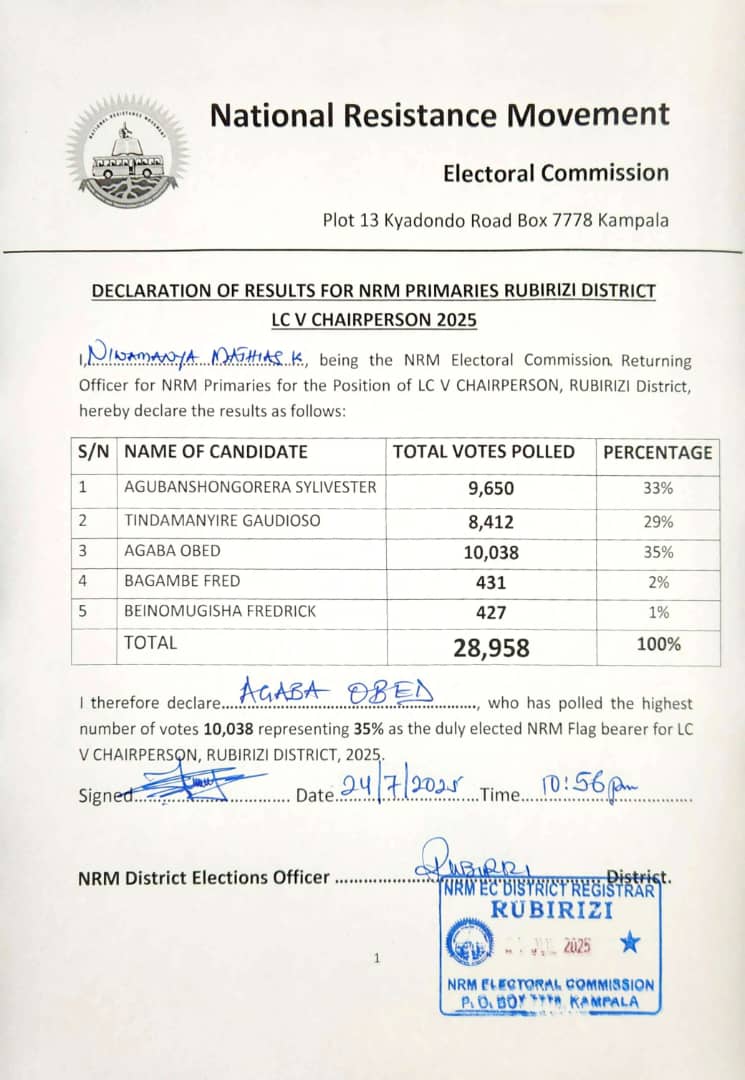 NATIONAL RESISTANCE MOVEMENT
National Resistance Movement
Electoral Commission
Plot 13 Kyadondo Road Box 7778 Kampala
DECLARATION OF RESULTS FOR NRM PRIMARIES RUBIRIZI DISTRICT
LC V CHAIRPERSON 2025
I, NIWAMANYA MATHIAS K, being the NRM Electoral Commission Returning
Officer for NRM Primaries for the Position of LC V CHAIRPERSON, RUBIRIZI District,
hereby declare the results as follows:
S/N NAME OF CANDIDATE TOTAL VOTES POLLED PERCENTAGE
1 AGUBANSHONGORERA SYLIVESTER 9,650 33%
2 TINDAMANYIRE GAUDIOSO 8,412 29%
3 AGABA OBED 10,038 35%
4 BAGAMBE FRED 431 2%
5 BEINOMUGISHA FREDRICK 427 1%
TOTAL 28,958 100%
I therefore declare AGABA OBED, who has polled the highest
number of votes 10,038 representing 35% as the duly elected NRM Flag bearer for LC
V CHAIRPERSON, RUBIRIZI DISTRICT, 2025.
Signed Date 24/7/2025 Time 10:56pm
NRM District Elections Officer District.
NRM EC DISTRICT REGISTRAR
RUBIRIZI
2025
NRM ELECTORAL COMMISSION
P. O. BOX KAMPALA
1